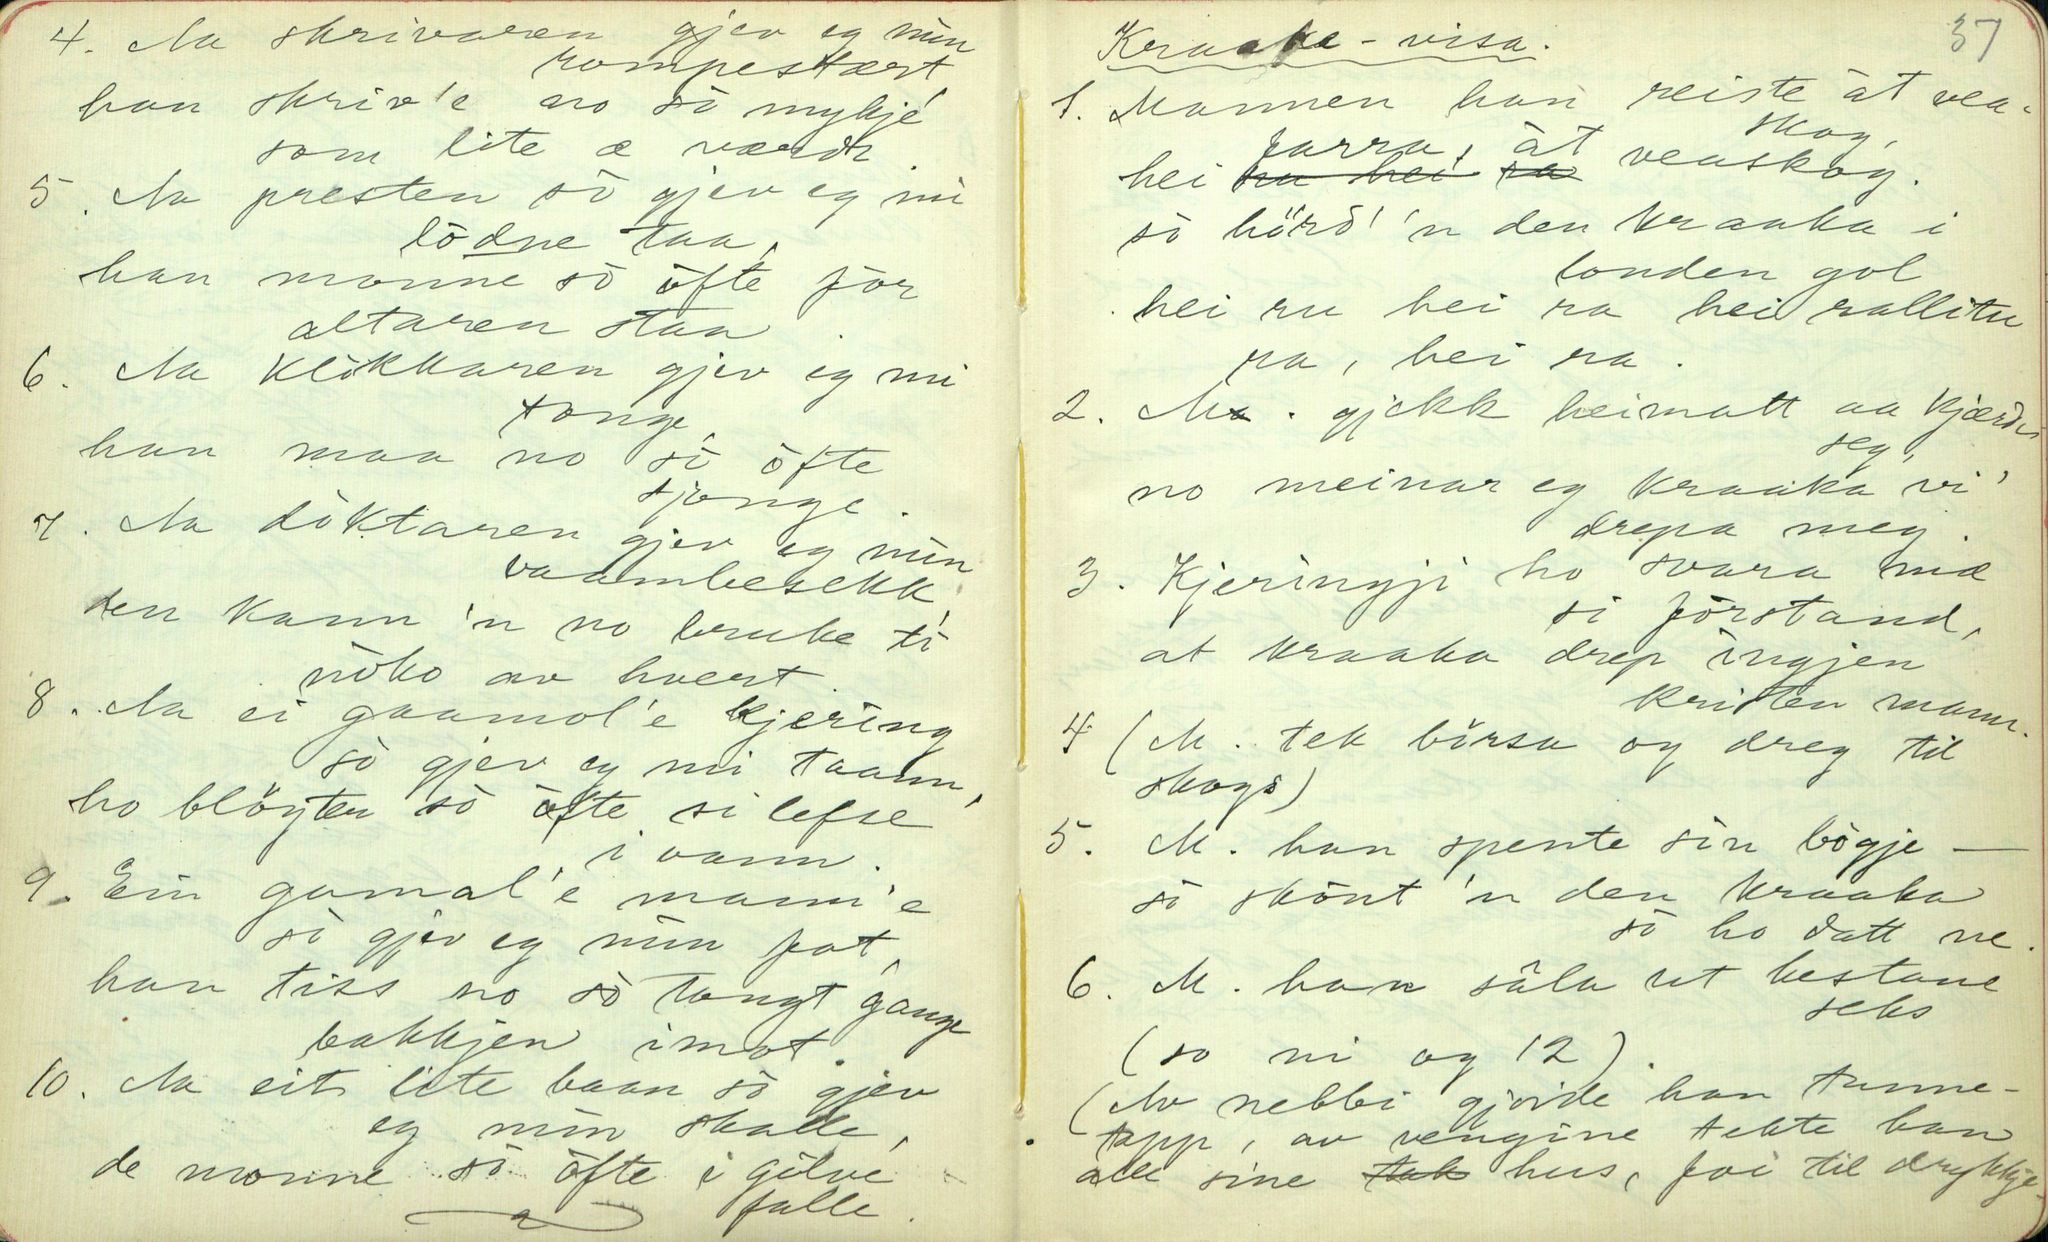 4. Aa skrivaren gjev eg min
rompestært
han skriv'e no så mykjé
som lite æ værdt.
5. Aa presten så gjev eg mi
lödne taa,
han monne så öfte för
altaren staa.
6. Aa klåkkaren gjev eg mi
tonge
han maa no så öfte
sjonge.
7. Aa dåktaren gjev eg min
vaambesekk
den kann 'n no bruke ti
nöko av hvert
8. Aa ei gaamol'e kjering
så gjev eg mi taann,
ho blöyter så öfte si lefse
i vann.
9. Ein gamal'e mann'e
så gjev eg min fot,
han tiss no så tongt gange
bakkjen imot.
10. Aa eit lite baan så gjev
eg min skalle,
de monne så öfte i gölvé
falle.
37
Kraake-visa.
1. Mannen han reiste åt vea-
skog,
hei farra, åt veaskog.
så hörd' 'n den kraaka i
londen gol
hei ru hei ra hei rallitu
ra, hei ra.
2. Ma. gjekk heimatt aa kjærdé
seg,
no meinar eg kraaka vi'
drepa meg.
3. Kjeringji ho svara mæ
si förstand,
at kraaka drep ingjen
kristen mann.
4 (M. tek börsa og dreg til
skogs)
5. M. han spente sin bögje —
så skönt 'n den kraaka
så ho datt ne.
6. M. han såla ut hestane
seks
(so ni og 12).
(Av nebbi gjorde han tunne-
tapp, av vengine tekte han
alle sine hus, foi til drykkje-